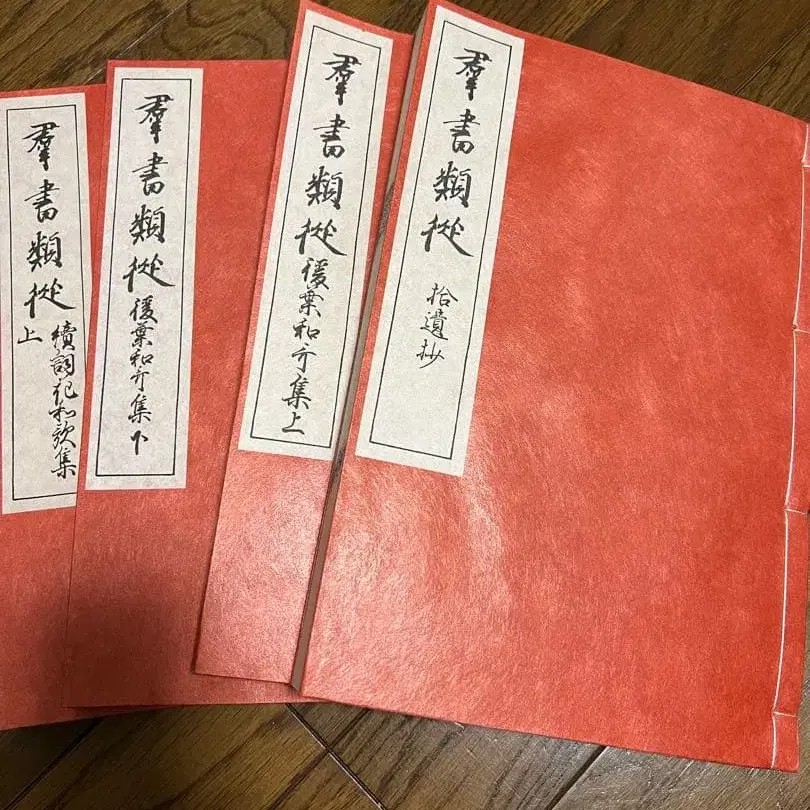 羣書類從 拾遺抄
羣書類從 後葉和哥集上
羣書類從 後葉和哥集下
羣書類從 續詞花和歌集
上